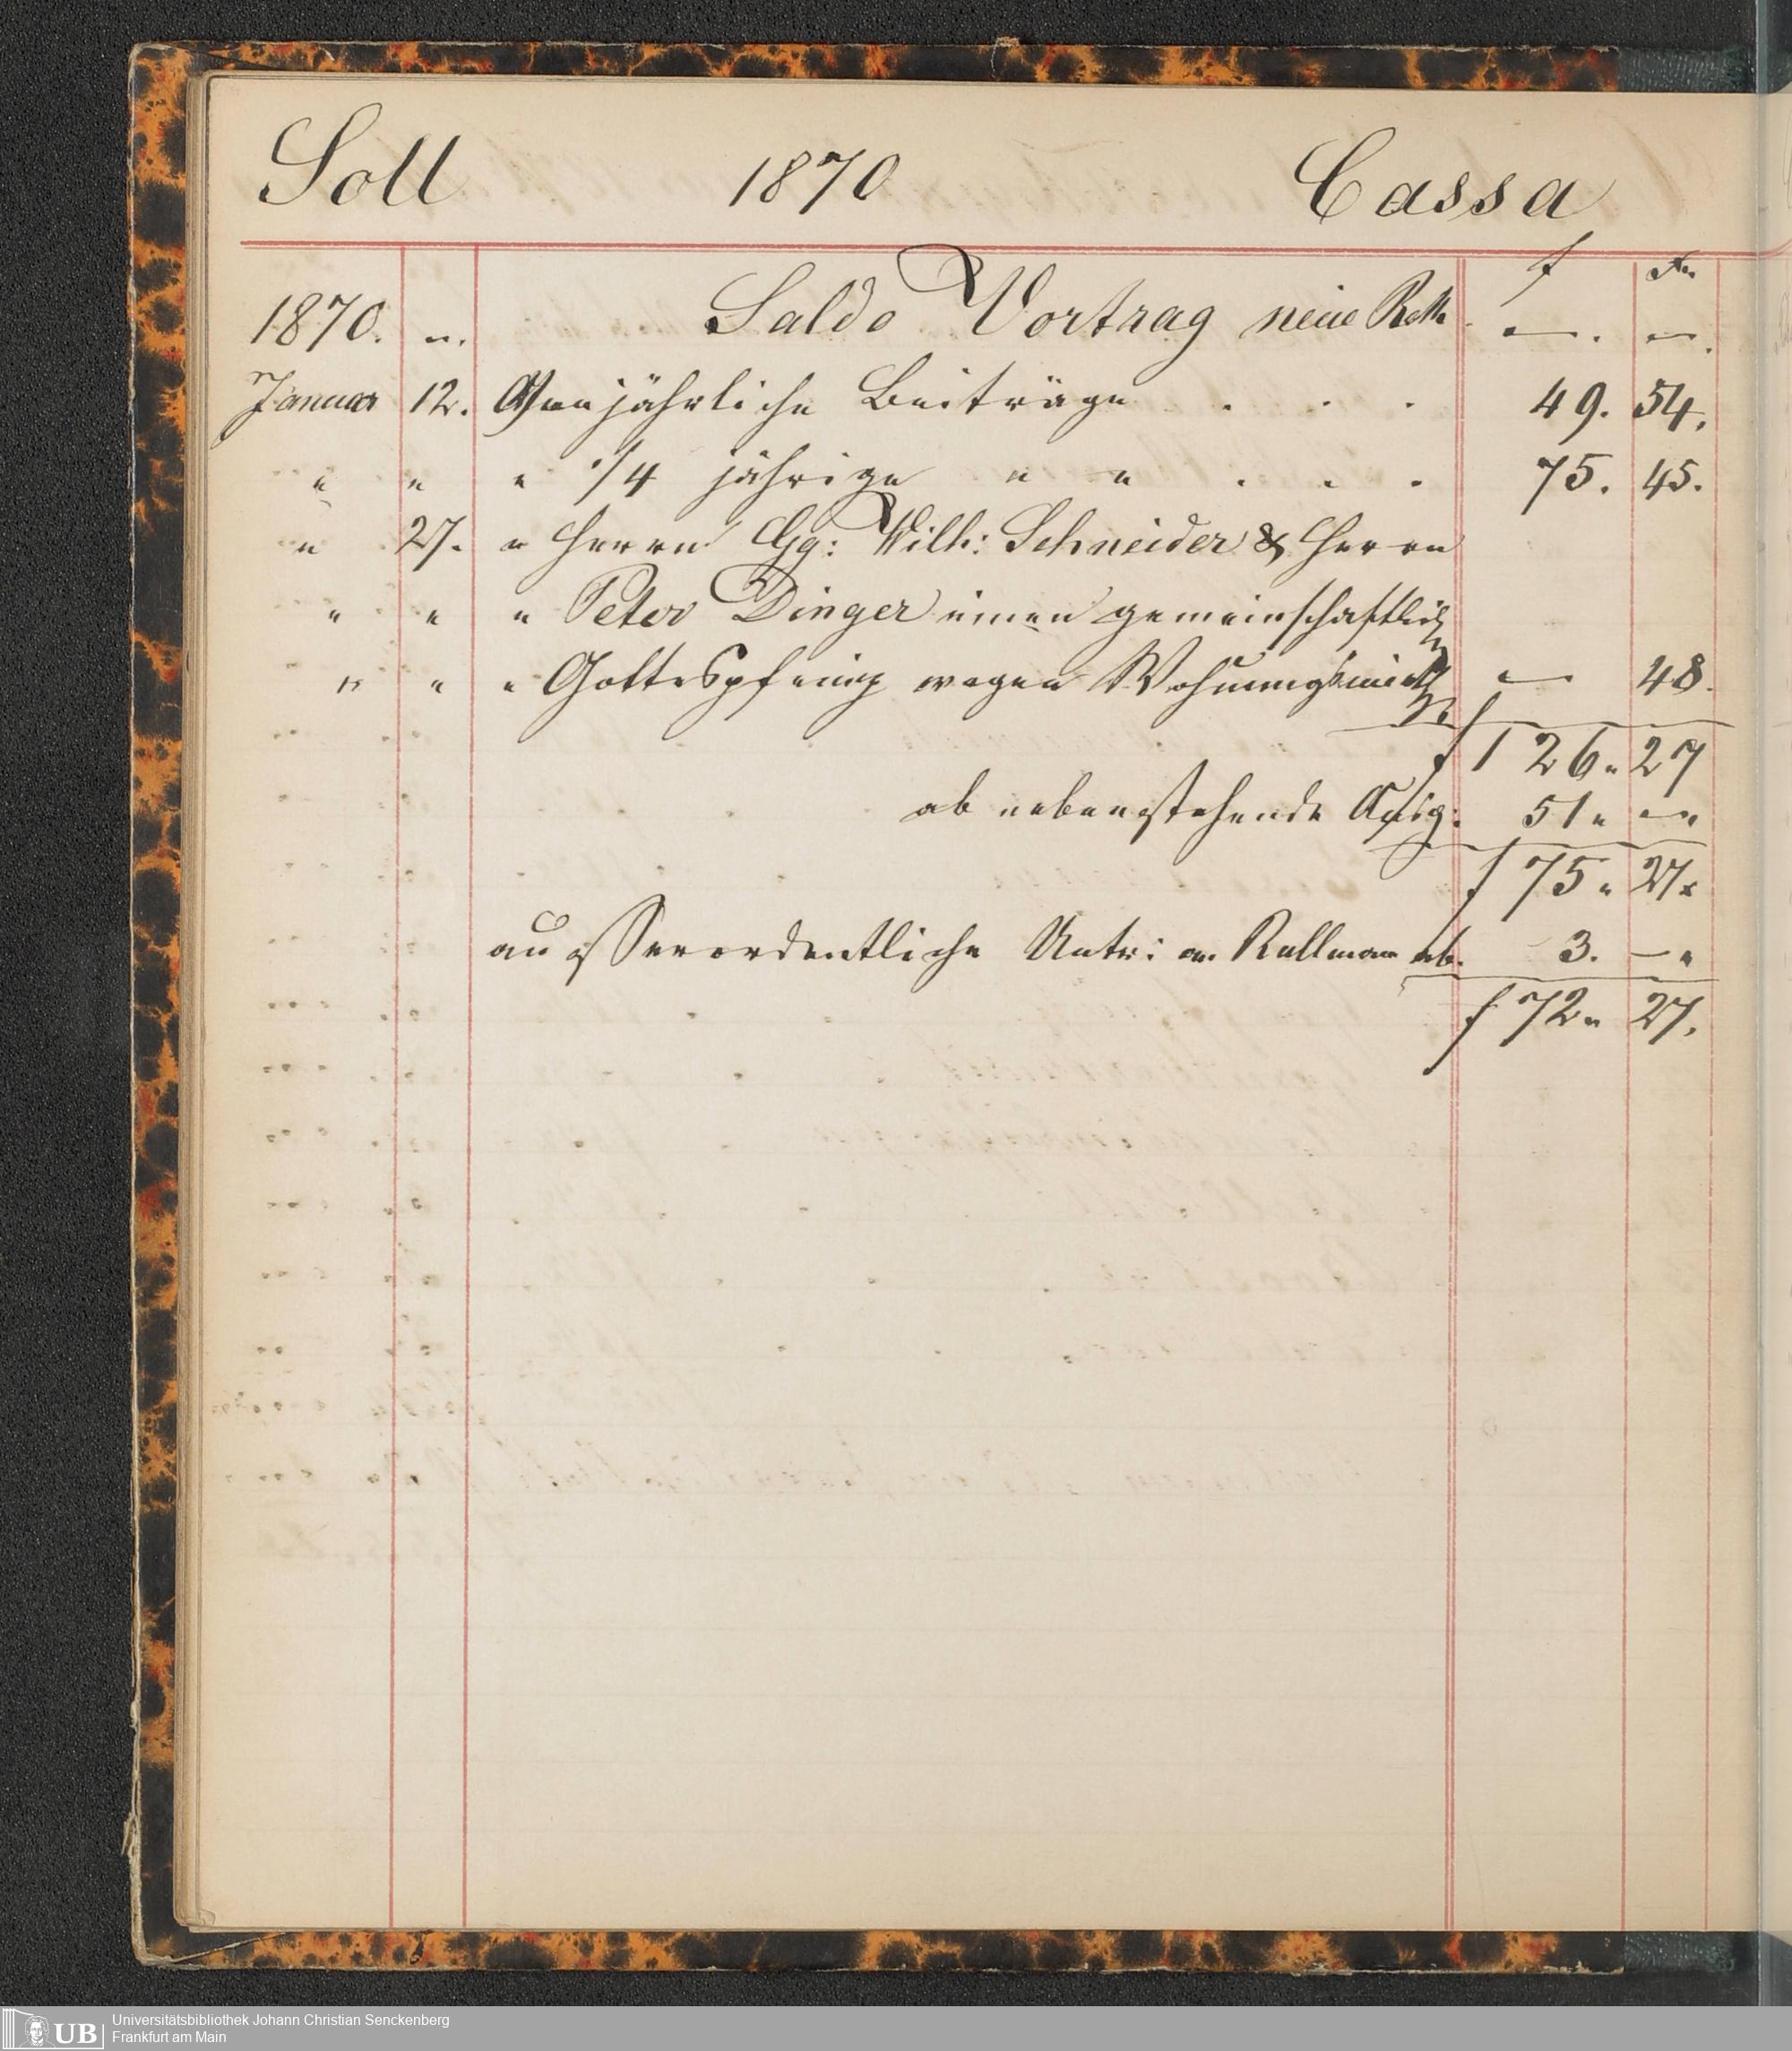 Soll 1870 Cassa
f Xr
1870. „. Saldo Vortrag neue — . — .
Januar 12. An jährliche Beiträge . . . 49. 54.
„ „ „ 1/4 jährige „ „ . . . 75. 45.
„ 27. „ Herrn Gg: Wilh: Schneider & Herrn
„ „ „ Peter Dinger einen gemeinschaftlich
„ „ „ Gottespfenig wegen Wohnungsmieth — 48.
f 126 „ 27
ab nebenstehende Ausg: 51 „ — „
f 75 „ 27 x
ausserordentliche Untr: an Rullmann ab. 3. — „
f 72 „ 27.
UB Universitätsbibliothek Johann Christian Senckenberg
Frankfurt am Main